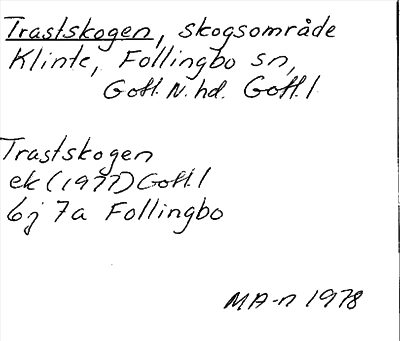 Trastskogen, skogsområde
Klinte, Follingbo sn,
Gotl. N. hd. Gotl. l
Trastskogen
ek (1977) Gotl. l
6j 7a Follingbo
MA-n 1978